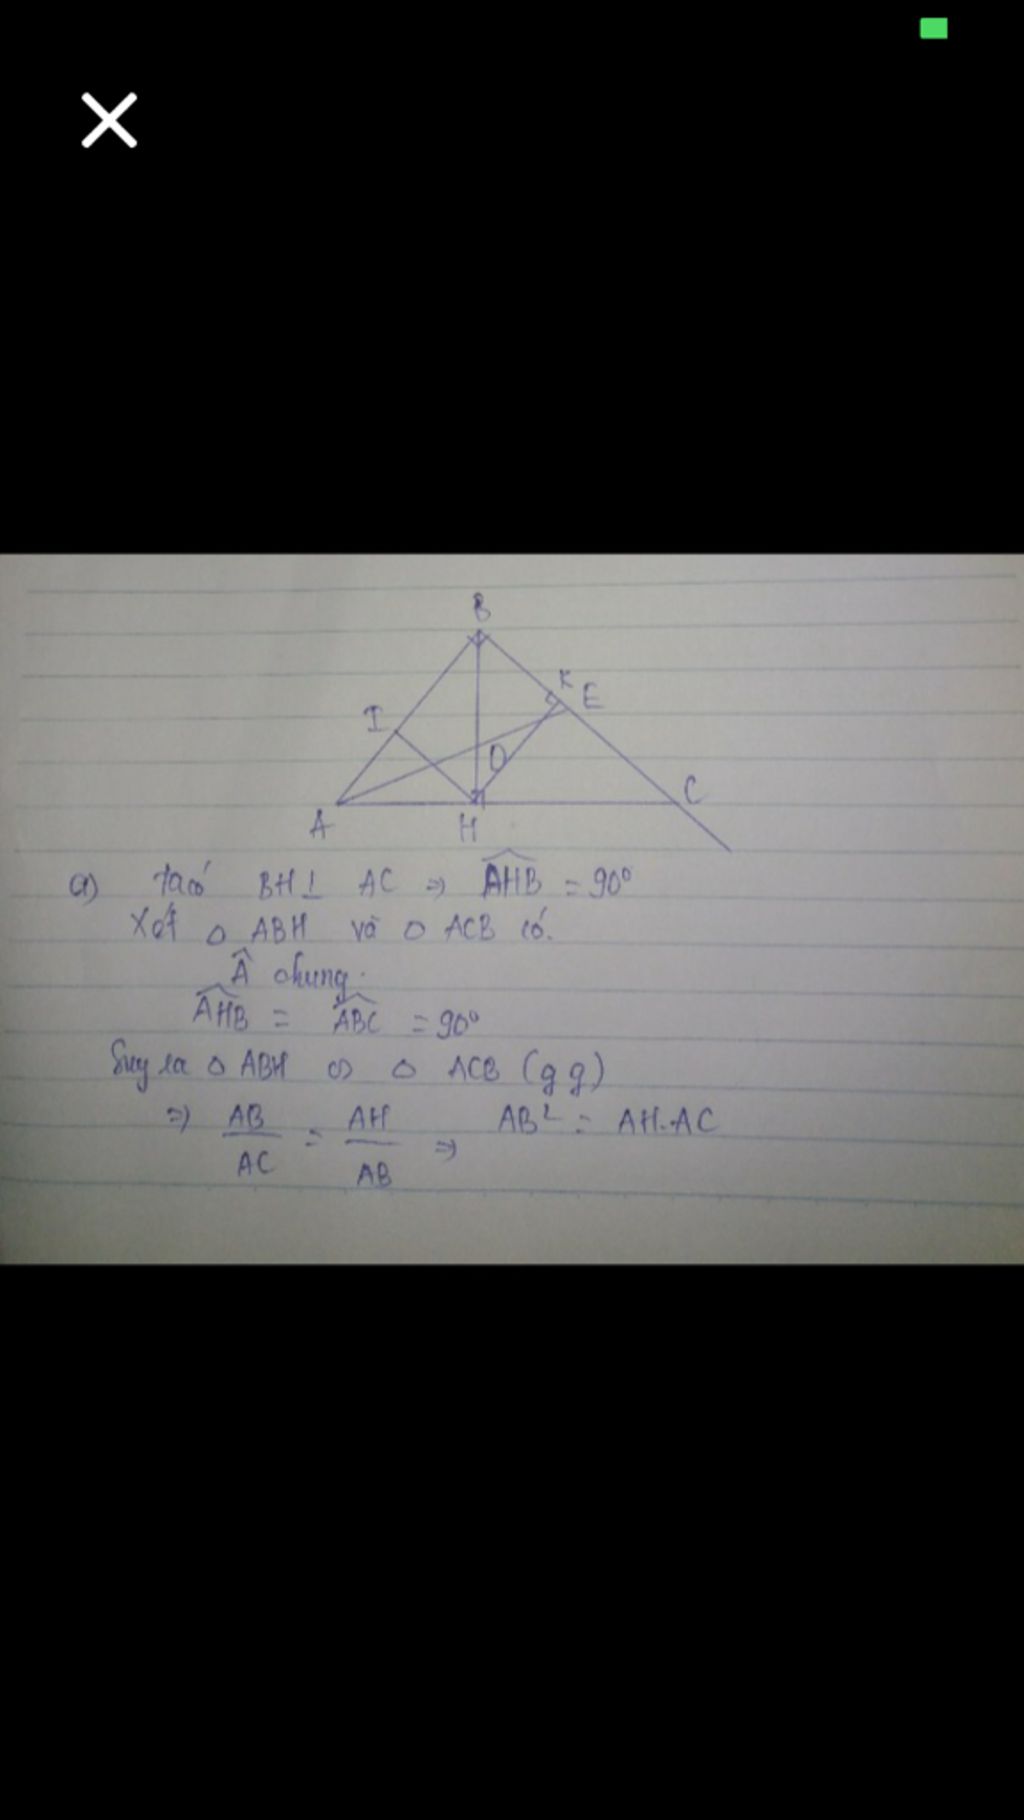 B
K
E
I
O
C
A
H
a) Ta có BH ⊥ AC ⇒ \widehat{AHB} = 90°
Xét △ ABH và △ ACB có.
 chung.
\widehat{AHB} = \widehat{ABC} = 90°
Suy ra △ ABH ∽ △ ACB (g g)
⇒ AB/AC = AH/AB ⇒ AB² = AH.AC